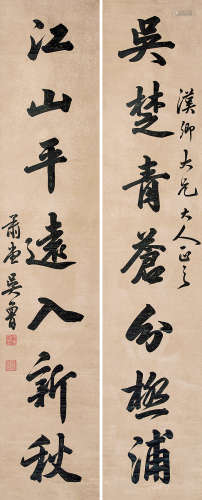 吳楚青蒼分極浦
漢卿大兄大人正之
江山平遠入新秋
肅堂吳魯